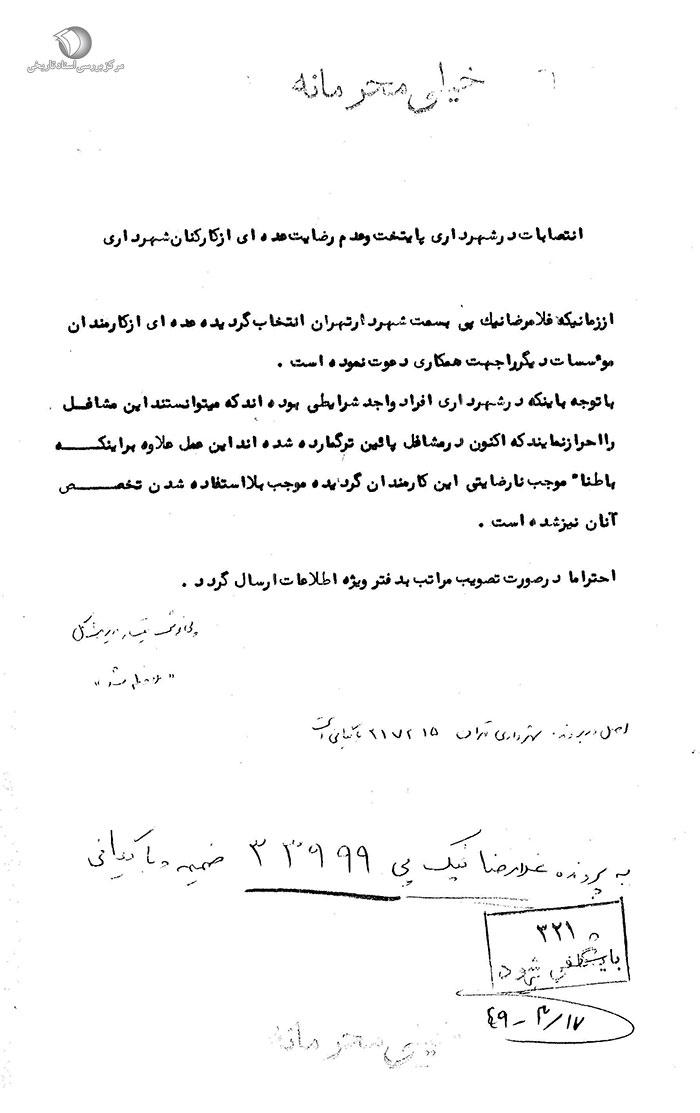 مرکز بررسی اسناد تاریخی
خیلی محرمانه
انتصابات در شهرداری پایتخت و عدم رضایت عده ای از کارکنان شهرداری
از زمانیکه غلامرضا نیک پی بسمت شهردار تهران انتخاب گردیده عده ای از کارمندان
موٴسسات دیگر را جهت همکاری دعوت نموده است .
با توجه باینکه در شهرداری افراد واجد شرایطی بوده اند که میتوانستند این مشاغل
را احراز نمایند که اکنون در مشاغل پائین تر گمارده شده اند این عمل علاوه بر اینکه
باطناً موجب نارضایتی این کارمندان گردیده موجب بلا استفاده شدن تخصص
آنان نیز شده است .
احتراما در صورت تصویب مراتب بدفتر ویژه اطلاعات ارسال گردد .
پی نوشت تیمسار مدیریت کل
" ملاحظه شد "
اصل در پرونده شهرداری تهران ۲۱۷۲۱۵ بایگانی است
به پرونده غلامرضا نیک پی ۳۳۹۹۹ ضمیمه و بایگانی
۳۲۱
بایگانی شود
۴۹-۳/۱۷
خیلی محرمانه